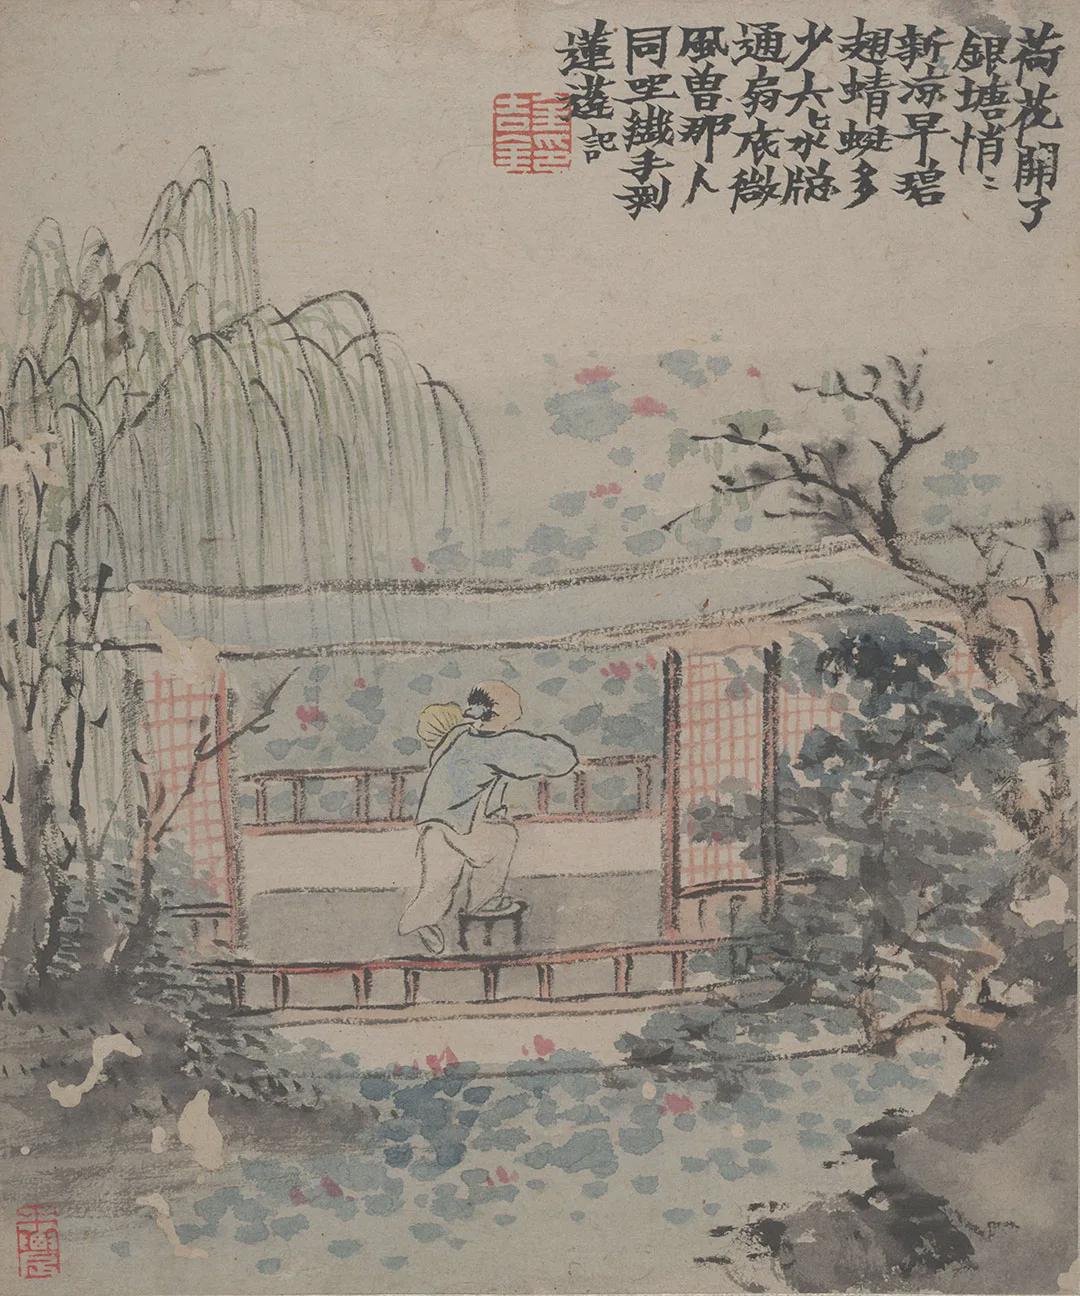 荷花開了
銀塘悄〻
新凉早碧
翅蜻蜓多
少六〻水牕
通扇底微
風曽那人
同坐纖手剥
蓮蓬記